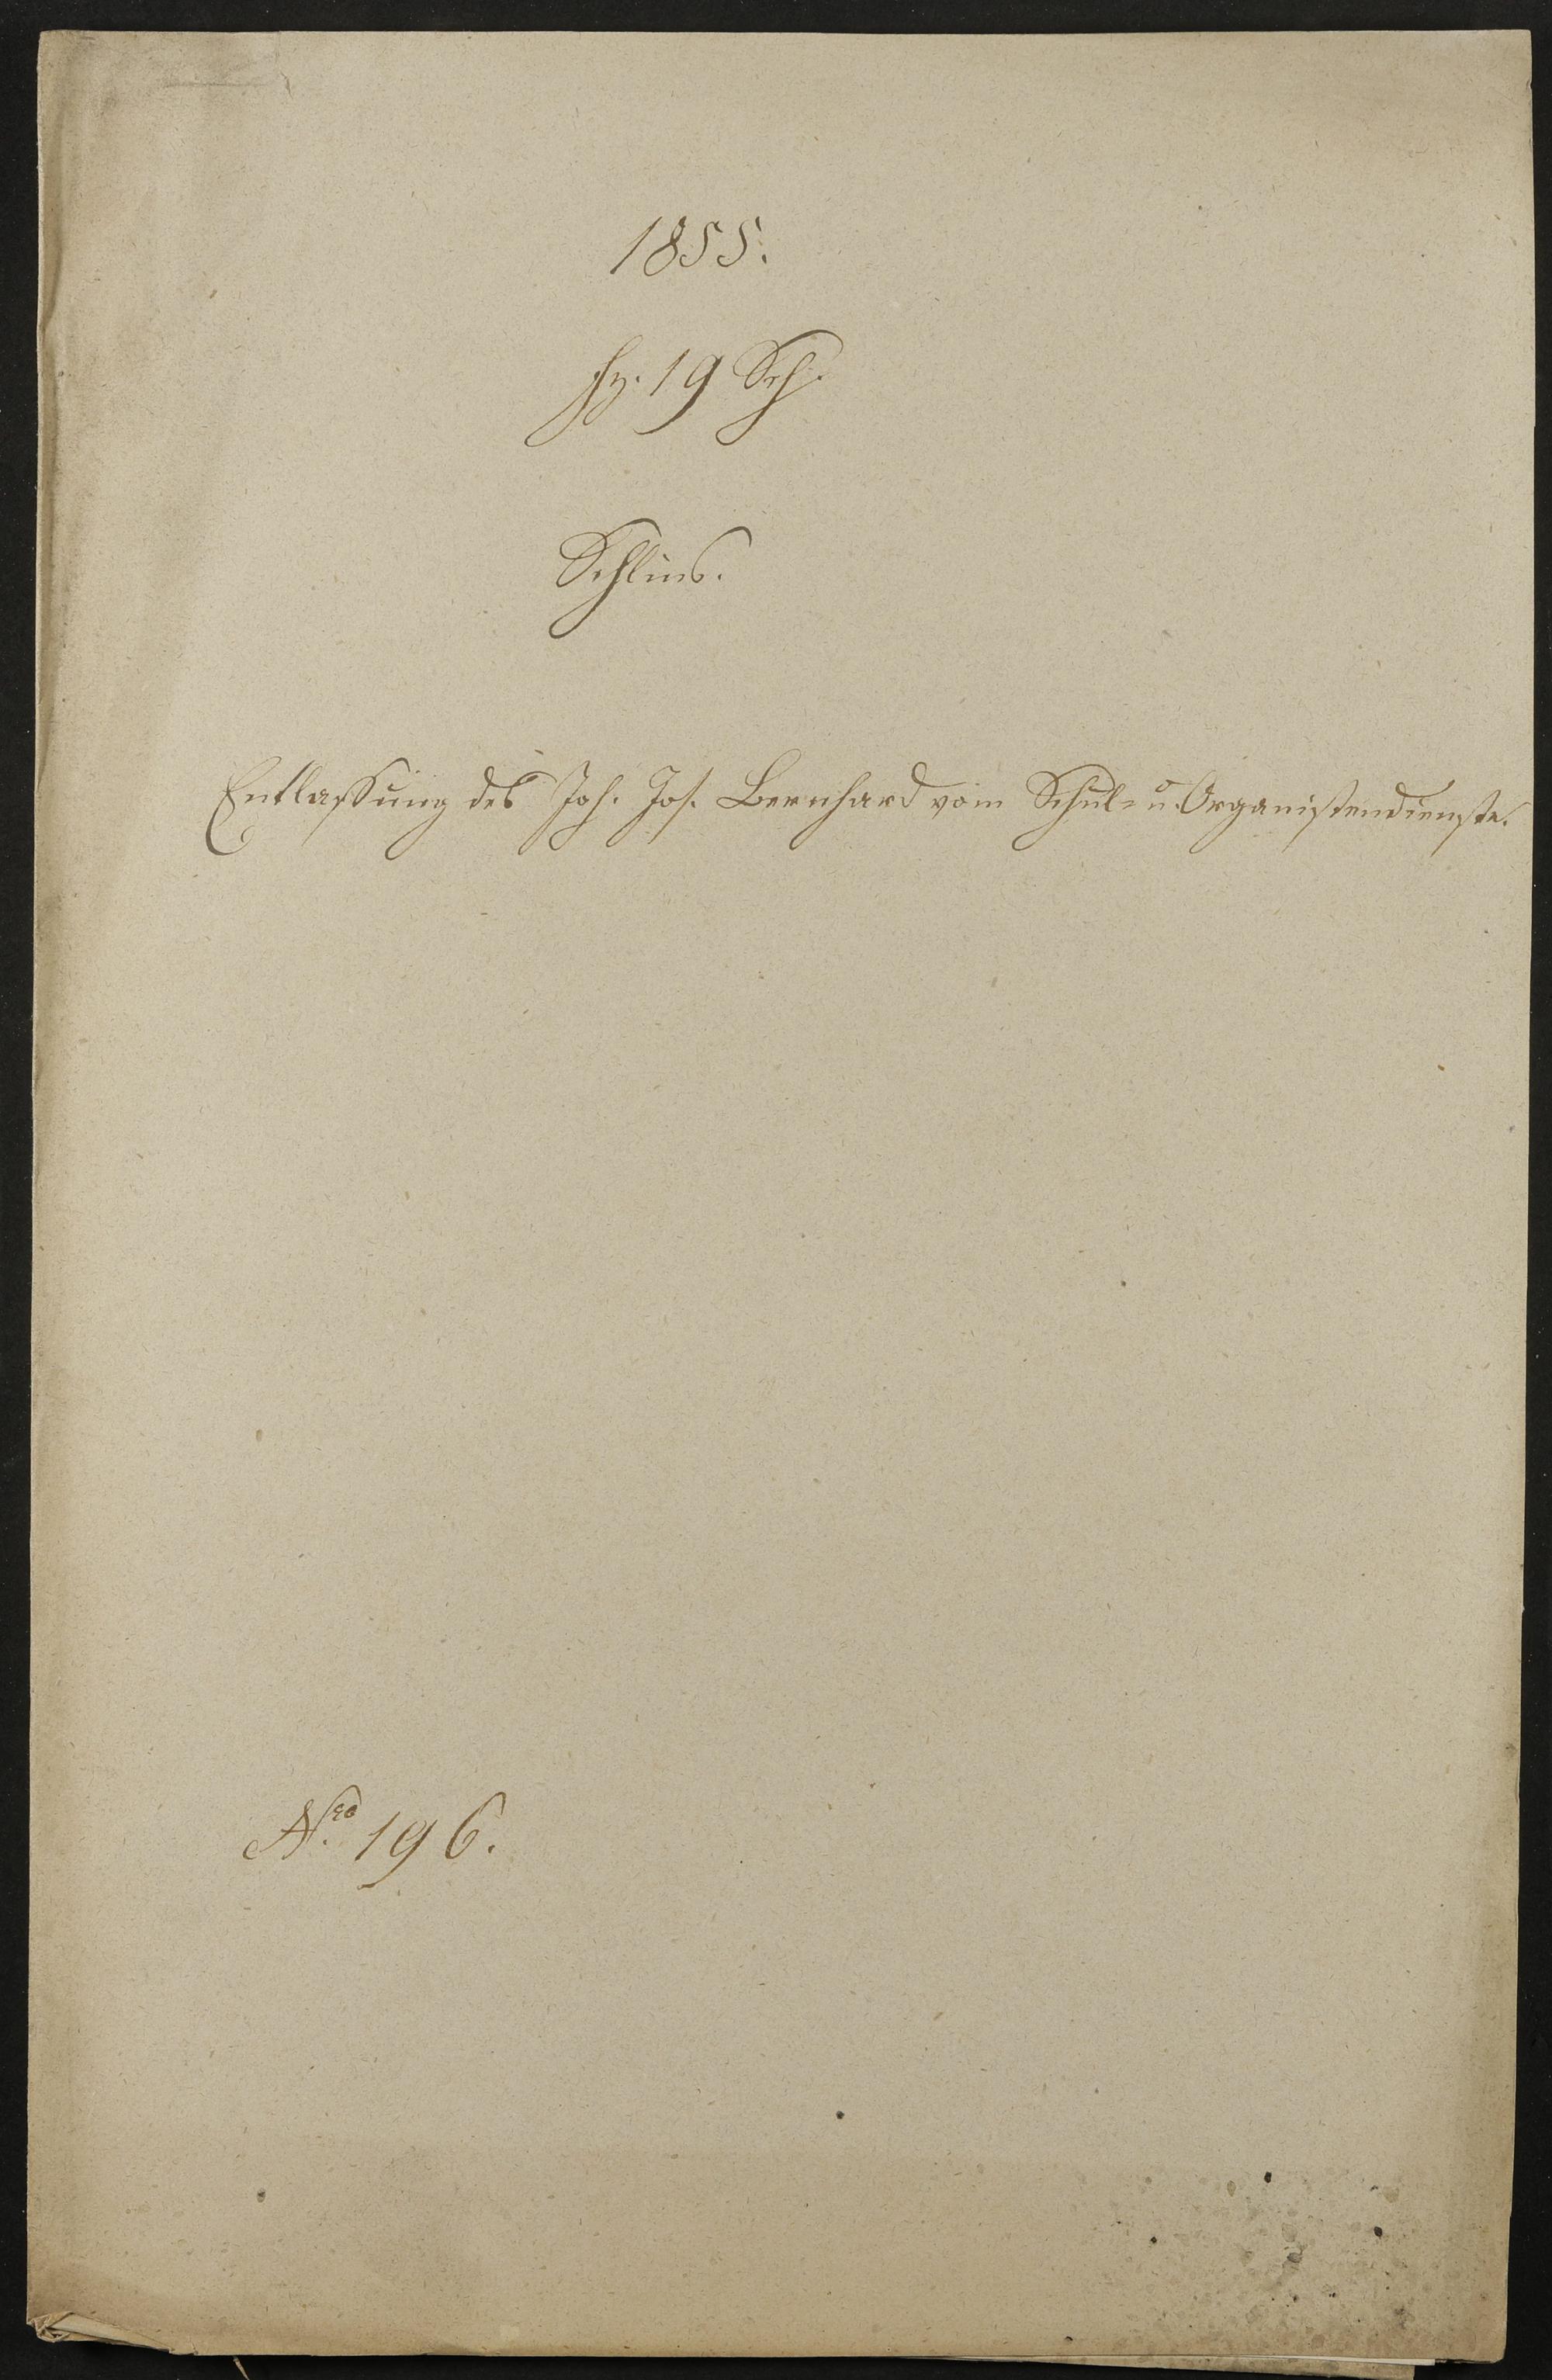 1855.
fz. 19 Sch.
Schlins.
Entlassung des Joh. Jos. Bernhard vom Schul- u. Organistendienste.
Nro. 196.